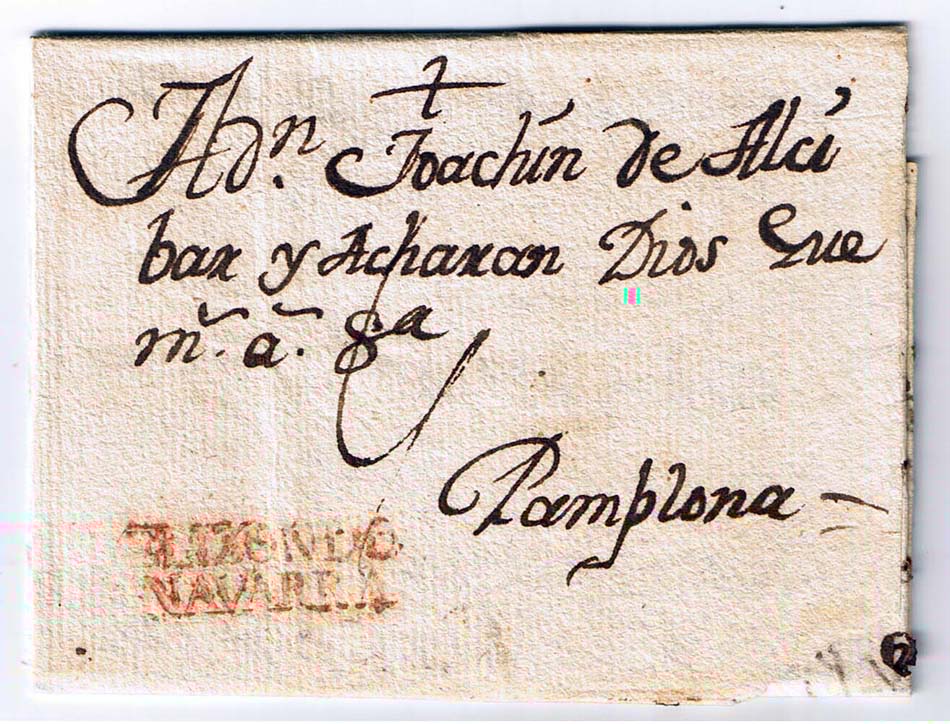 +
A dn. Joachin de Alci
bar y Acharan Dios Gue
m.ˢ a.ˢ &a
Pamplona
ELIZONDO
NAVARRA